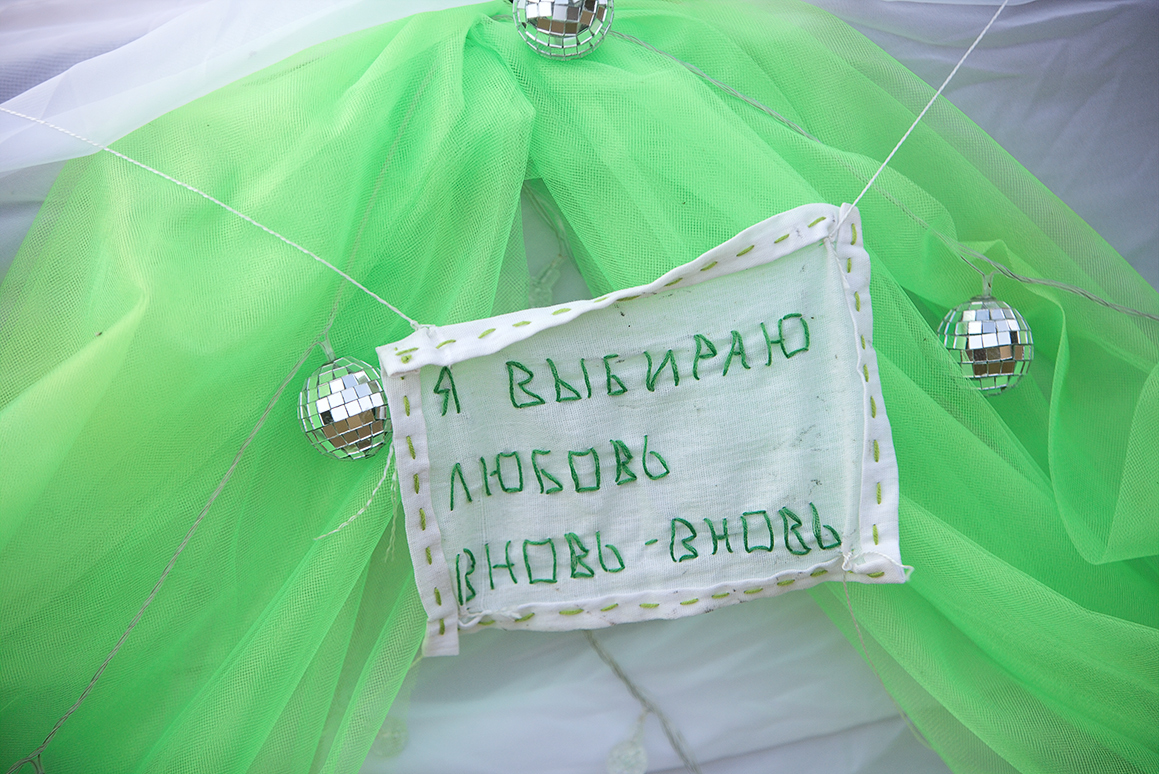 Я ВЫБИРАЮ
ЛЮБОВЬ
ВНОВЬ-ВНОВЬ